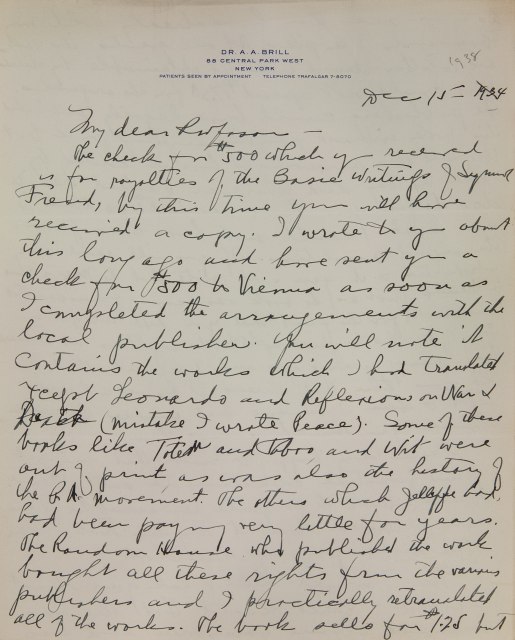 DR. A. A. BRILL
88 CENTRAL PARK WEST
NEW YORK
PATIENTS SEEN BY APPOINTMENT TELEPHONE TRAFALGAR 7-8070
1938
Dec 15 - 1934
My dear Professor -
The check for $500 which you received
is for royalties of the Basic Writings of Sigmund
Freud, by this time you will have
received a copy. I wrote to you about
this long ago and have sent you a
check for $500 to Vienna as soon as
I completed the arrangements with the
local publisher. You will note it
contains the works which I had translated
except Leonardo and Reflexions on War &
Death (mistake I wrote Peace). Some of these
books like Totem and Taboo and Wit were
out of print as was also the history of
the P.A. movement. The others which Jelliffe had,
had been paying very little for years.
The Random House who published the work
bought all these rights from the various
publishers and I practically retranslated
all of the works. The book sells for $1.25 but